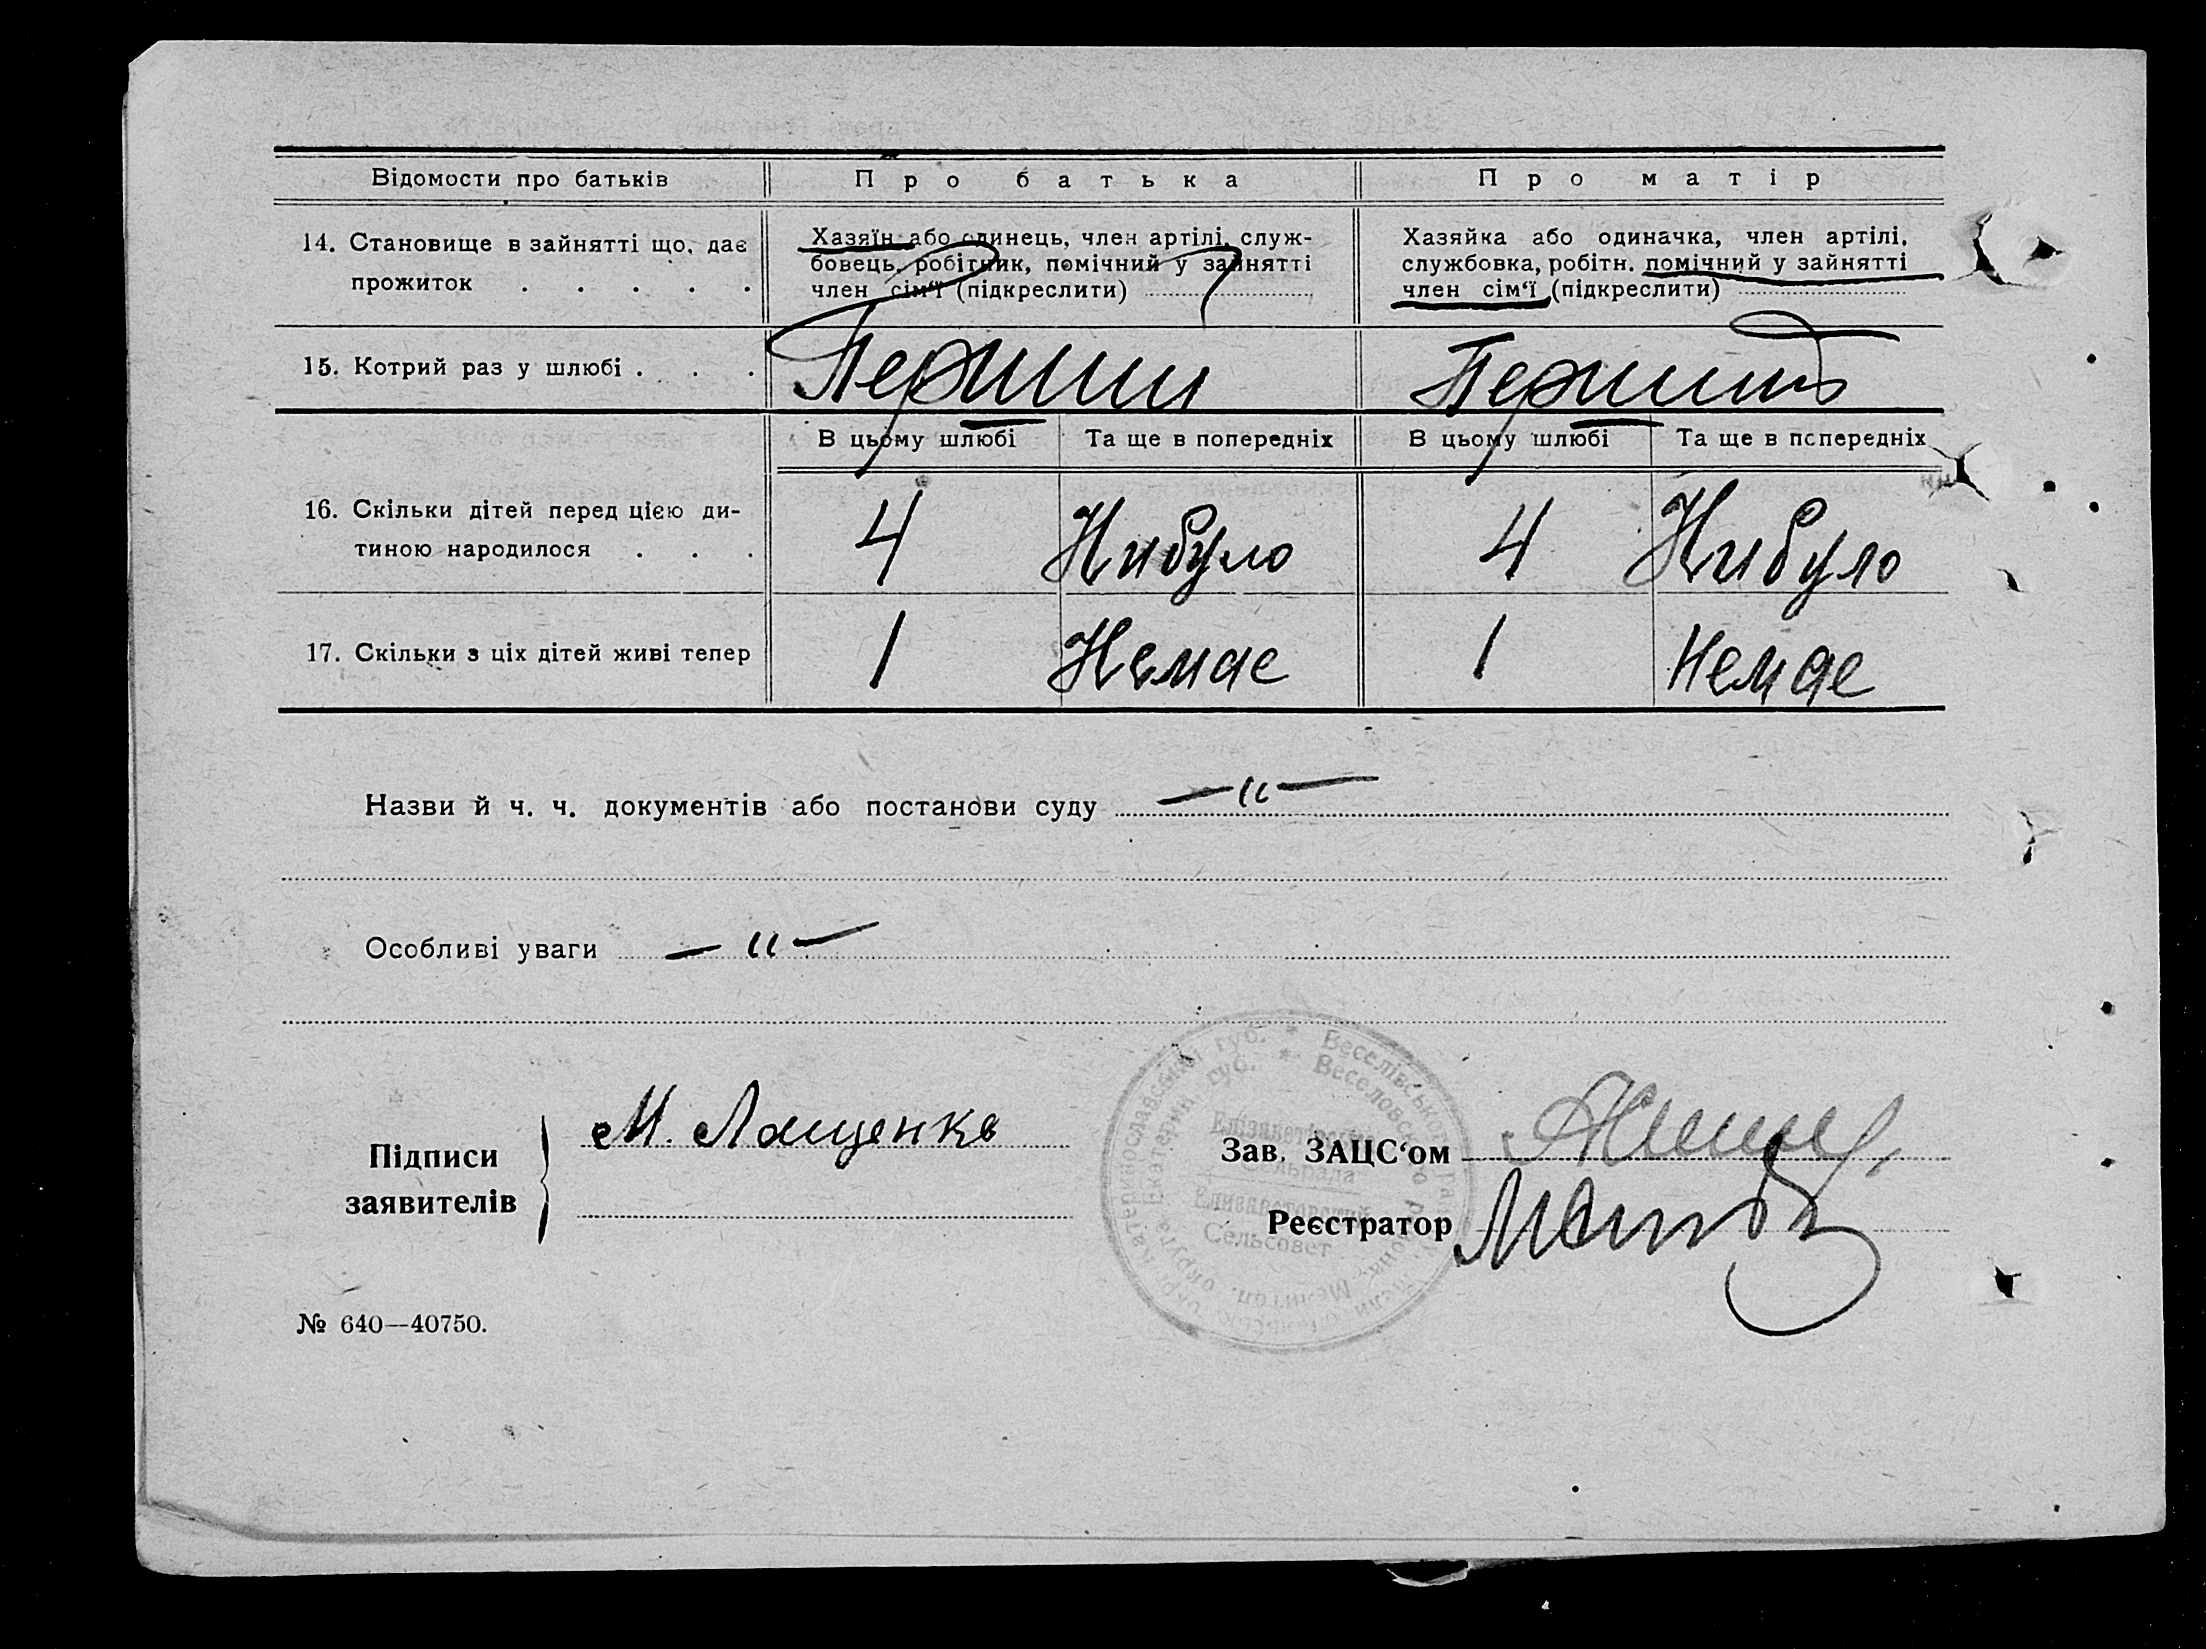 Відомости про батьків
Про батька
Про матір
14. Становище в зайнятті що, дає
прожиток . . . . .
Хазяїн або одинець, член артілі, служ-
бовець, робітник, помічний у зайнятті
член сім'ї (підкреслити)
Хазяйка або одиначка, член артілі,
службовка, робітн. помічний у зайнятті
член сім'ї (підкреслити)
15. Котрий раз у шлюбі . . .
Перший
Перший
В цьому шлюбі
Та ще в попередніх
В цьому шлюбі
Та ще в попередніх
16. Скільки дітей перед цією ди-
тиною народилося . . .
4
Нибуло
4
Нибуло
17. Скільки з ціх дітей живі тепер
1
Немає
1
Немає
Назви й ч. ч. документів або постанови суду — " —
Особливі уваги — " —
Підписи
заявителів
М. Лященко
Зав. ЗАЦС'ом
Реєстратор
губ. * Веселівського
губ. * Веселовского района, Мелитоп. округа Екатерин.
Сельрада
Сельсовет
№ 640—40750.